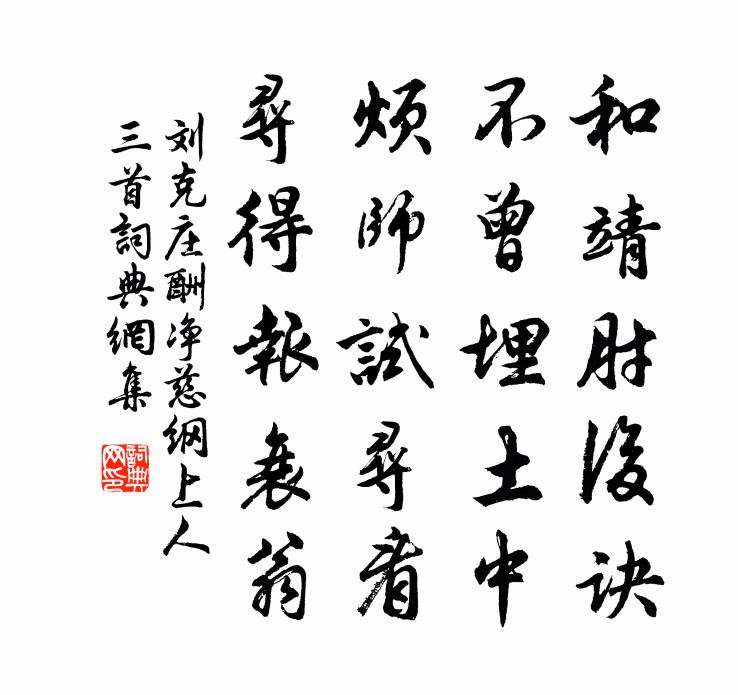 和靖肘後诀
不曾埋土中
烦師試尋看
尋得報衰翁
刘克庄酬净慈纲上人
三首詞典網集
詞典网印